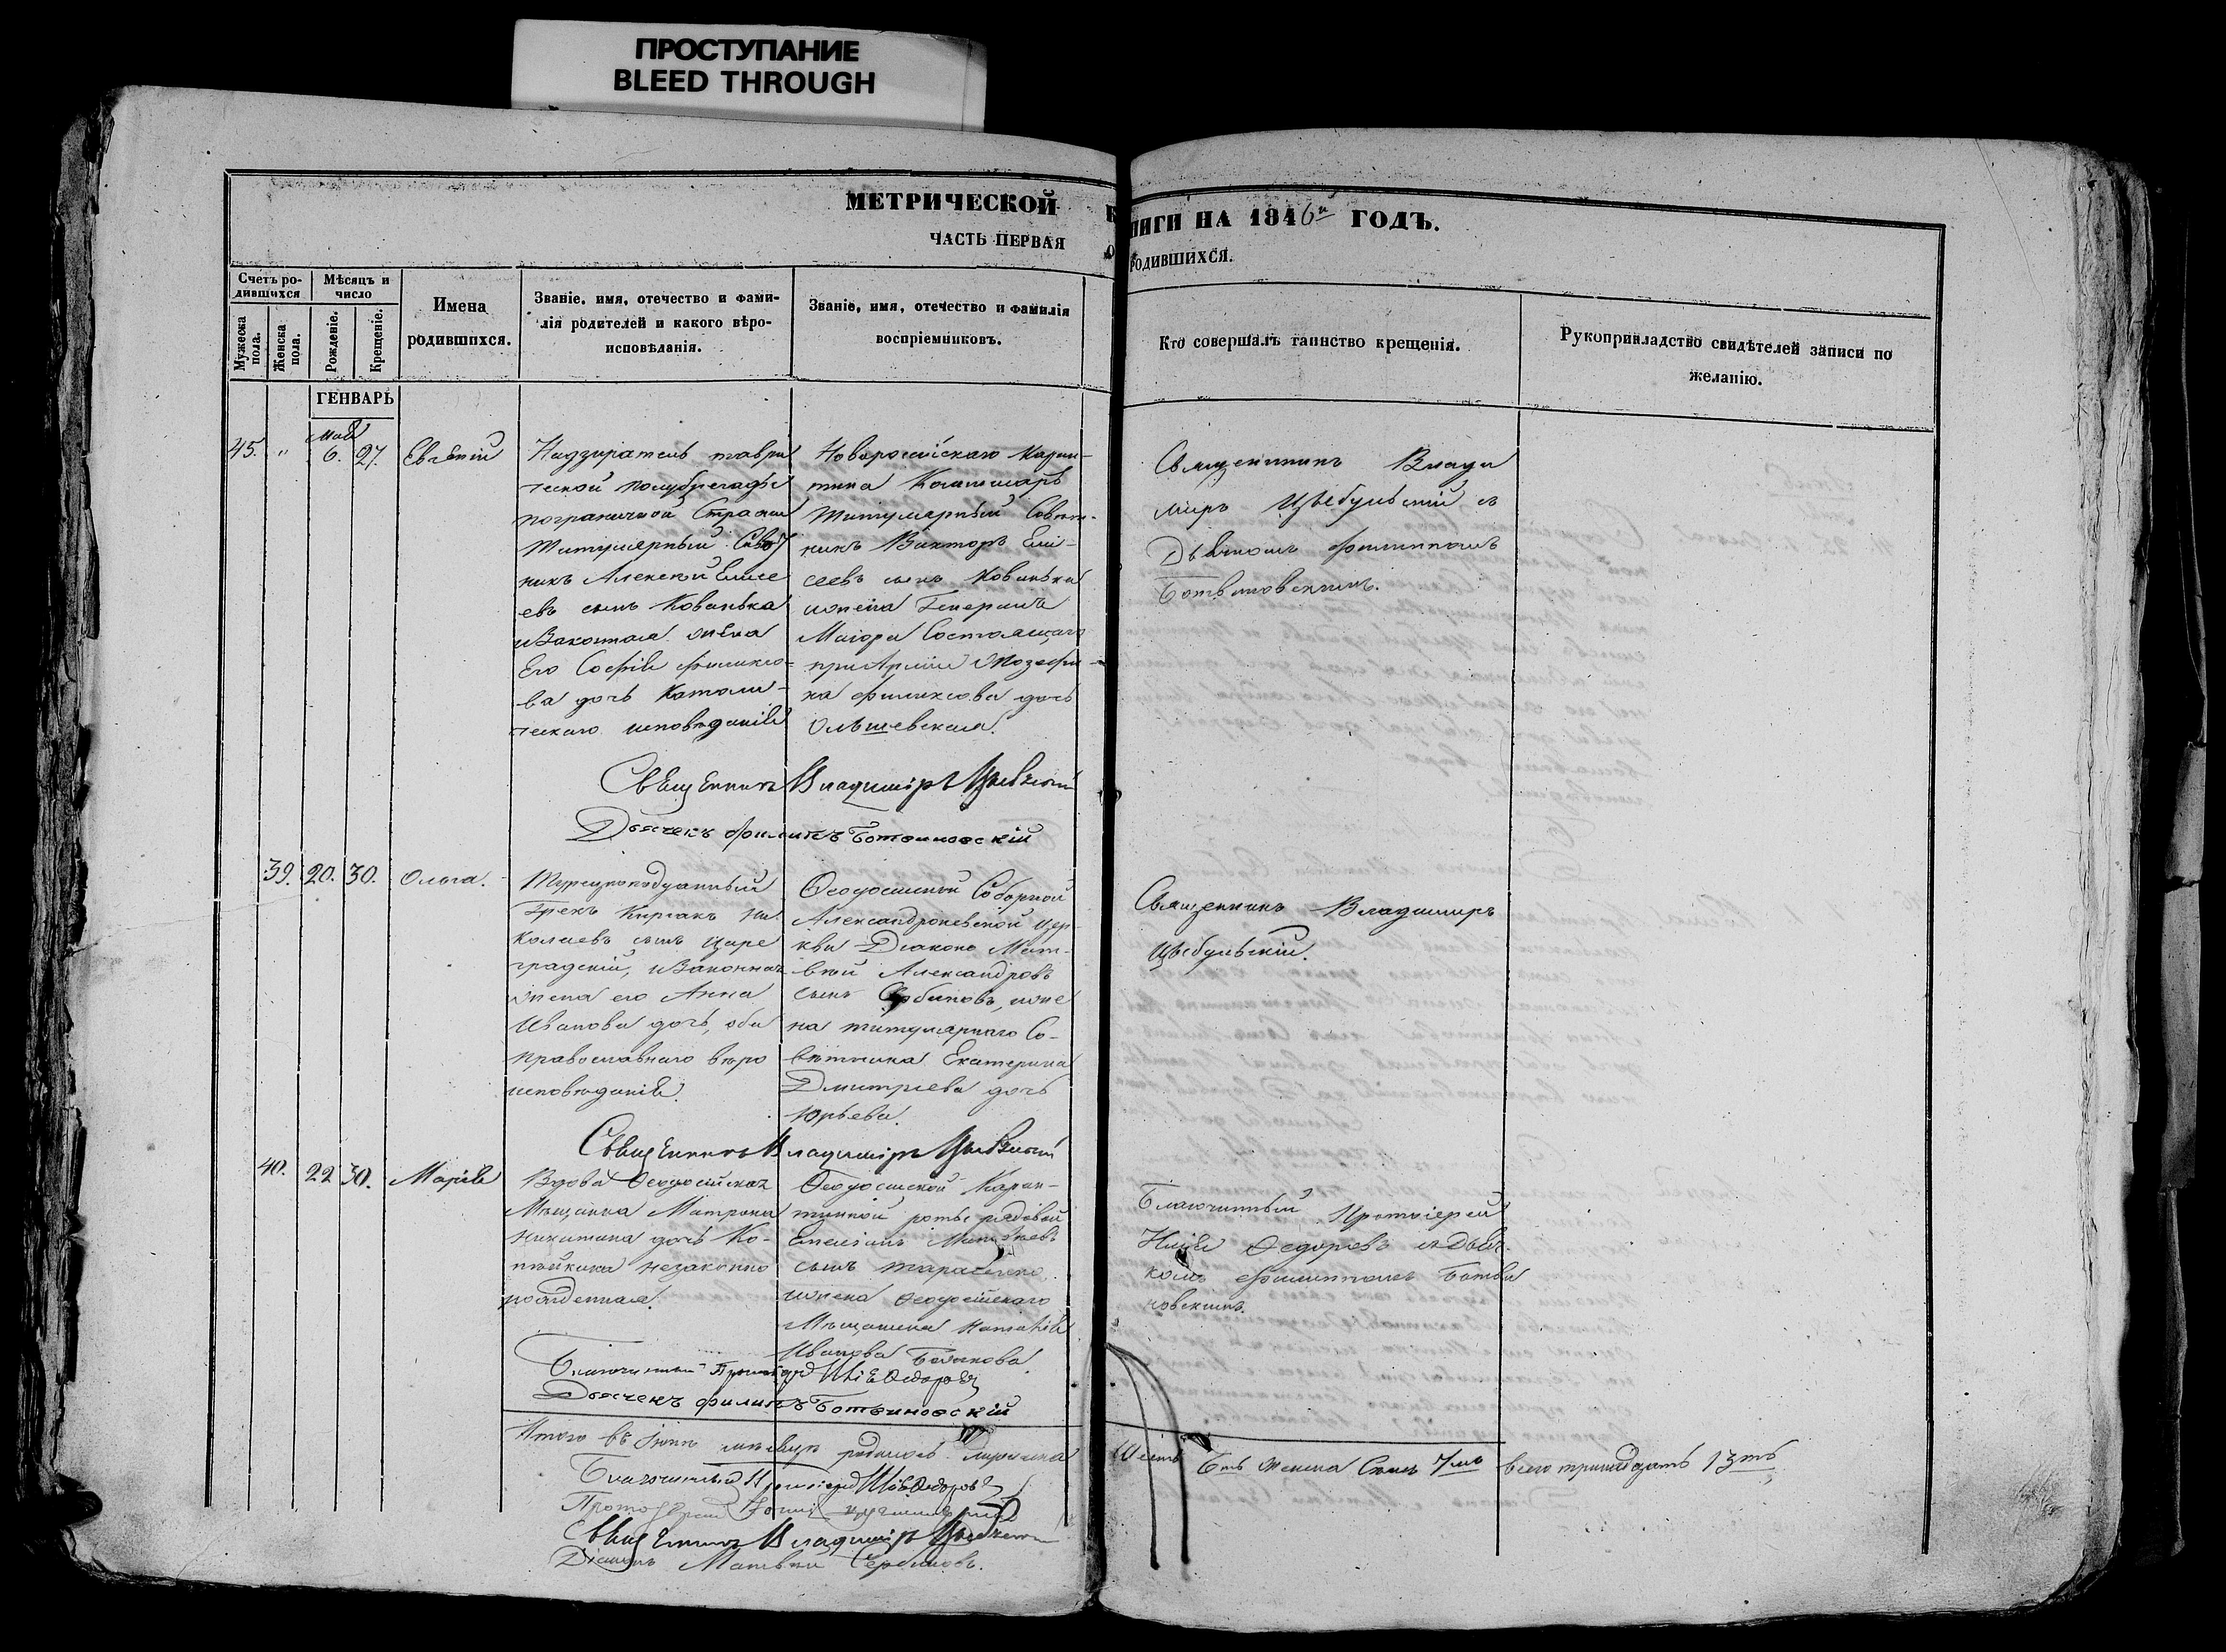 ПРОСТУПАНИЕ
BLEED THROUGH
МЕТРИЧЕСКОЙ
НИГИ НА 1846й ГОДЪ.
ЧАСТЬ ПЕРВАЯ
РОДИВШИХСЯ.
Счетъ ро-
дившихся
Мужеска пола.
Женска пола.
Мѣсяцъ и
число
Рожденіе.
Крещеніе.
Имена
родившихся.
Званіе, имя, отечество и фами-
лія родителей и какого вѣро-
исповѣданія.
Званіе, имя, отечество и фамилія
воспріемниковъ.
Кто совершалъ таинство крещенія.
Рукоприкладство свидѣтелей записи по
желанію.
ГЕНВАРЬ
Май
45. " 6. 27. Евгеній
Надзиратель таври
ческой полубригады
пограничной Стражи
Титулярный Совѣт
никъ Алексѣй Елисе
евъ сынъ Кованька
и Законная жена
Его Софія Филиксо-
ва дочь Католи-
ческаго исповѣданія
Новоросійскаго Каран-
тина Комисаръ
Титулярный Совѣт-
никъ Викторъ Ели-
сеевъ сынъ Кованька
и жена Генералъ
Маіора Состоящаго
при Арміи Жозефи-
на Филиксова дочь
Ольшевская.
Священникъ Влади
миръ Цыбульскій съ
Дьячкомъ Филиппомъ
Ботвиновскимъ.
Священникъ Владиміръ
Дьячекъ Филипъ Ботвиновскій
39. 20. 30. Ольга.
Турецкоподданный
Грекъ Киріакъ Ни
колаевъ сынъ Царе
градскій, и Законная
жена его Анна
Иванова дочь, оба
православнаго вѣро
исповѣданія.
Ѳеодосійской Соборной
Александроневской Цер
кви Діаконъ Мат-
вѣй Александровъ
сынъ Сербиновъ, и же
на титулярнаго Со-
вѣтника Екатерина
Дмитріева дочь
Юрьева.
Священникъ Владимиръ
Цыбульскій.
Священникъ Владиміръ
40. 22 30. Марія
Вдова Ѳеодосійская
Мѣщанка Матрона
Никитина дочь Ко-
пѣйкина незаконно
рожденная.
Ѳеодосійской Каран-
тинной роты рядовой
сынъ
и жена Ѳеодосійскаго
Мѣщанина Наталія
Иванова
Благочинный Протоіерей
Илія Ѳедоровъ съ Дьяч-
комъ Филиппомъ Ботви
новскимъ.
Благочинный Протоіерей Илія Ѳедоровъ
Дьячекъ Филипъ Ботвиновскій
Итого въ мѣсяцѣ родилось Мужеска
Шесть 6ть Женска Семь 7мь всего тринадцать 13ть
Благочинный Протоіерей Илія Ѳедоровъ
Протоіерей
Священникъ Владиміръ
Діаконъ Матвѣй Сербиновъ.